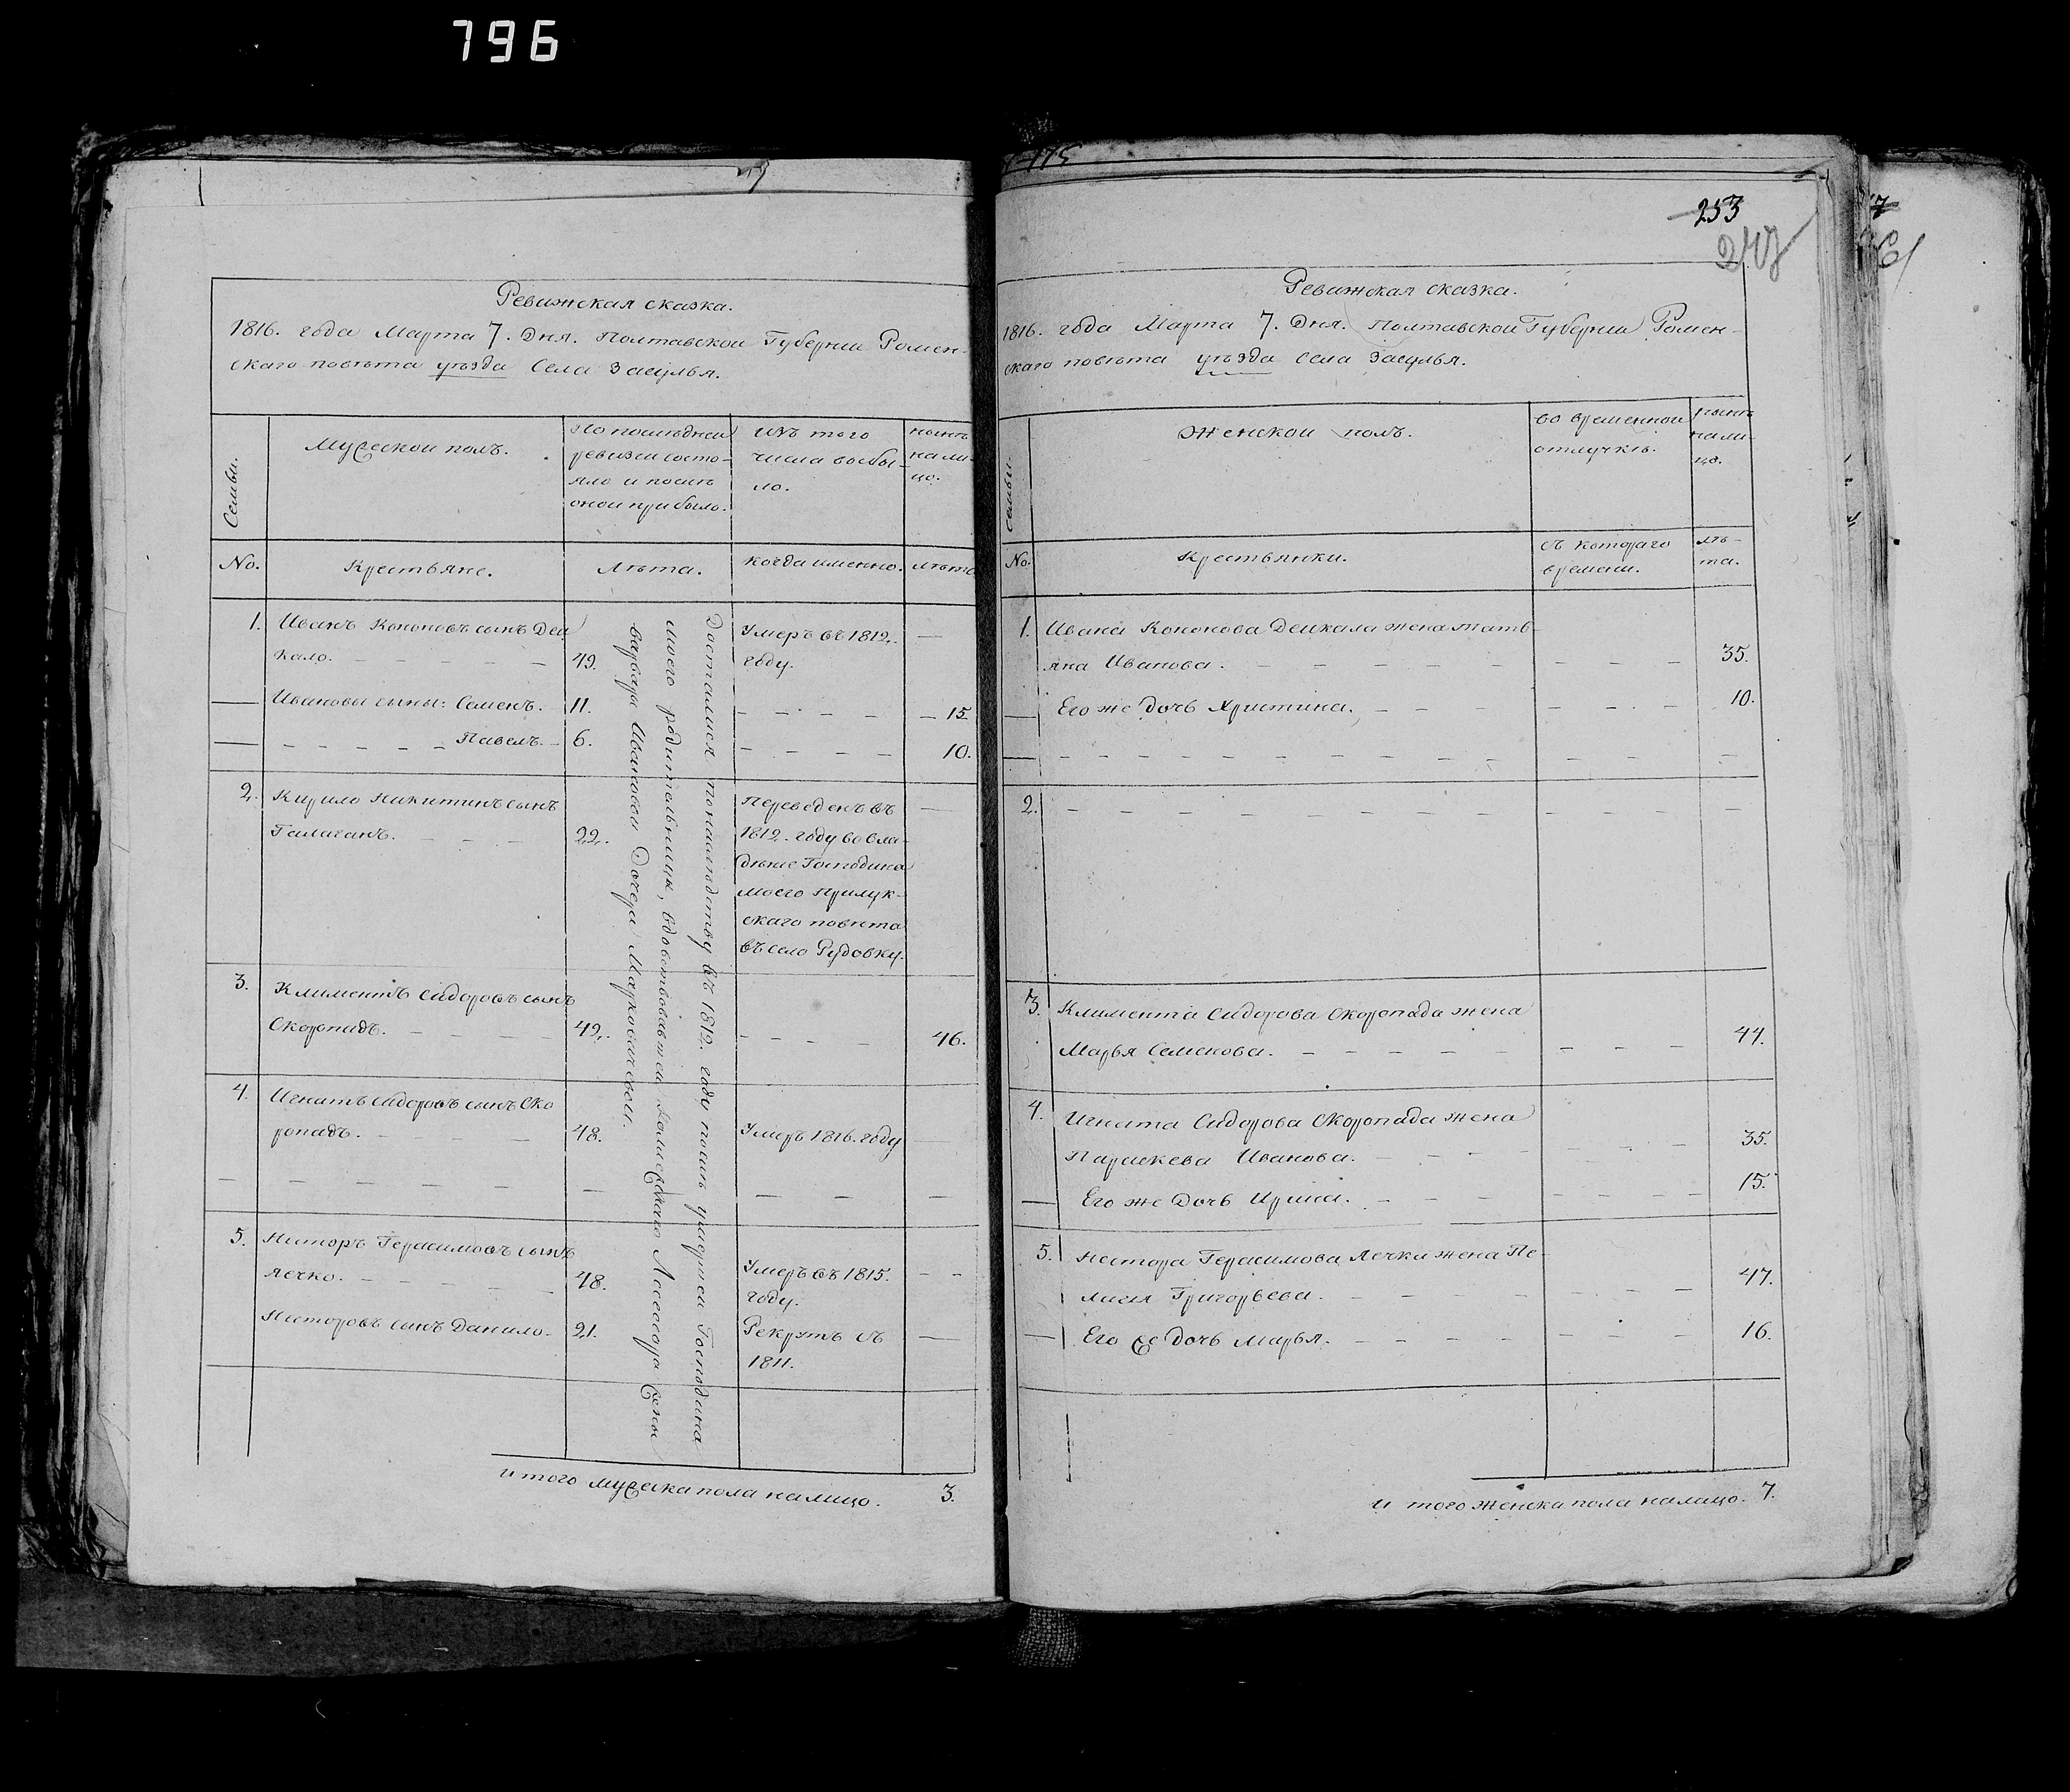 796
Ревижская сказка.
1816. года Марта 7. Дня. Полтавской Губернии Ромен-
скаго повѣта уѣзда Села Засулья.
Семьи.
Мужеской полъ.
По последней
ревизии состо-
яло и послѣ
оной прибыло.
Изъ того
числа выбы-
ло.
нынѣ
нали-
цо.
No.
Крестьяне.
Лѣта.
когда именно.
лѣта
1. Иванъ Кононовъ сынъ Деи
кало. 49.
Умеръ въ 1812.
году.
Ивановы сыны: Семенъ. 11. 15.
Павелъ. 6. 10.
2. Кирило Никитинъ сынъ
Галаганъ. 22.
Переведенъ въ
1812. году во вла-
дѣние Господина
моего Прилук-
скаго повѣта
въ село Рудовку.
3. Климентъ Сидоровъ сынъ
Скоропадъ. 42. 46.
4. Игнатъ Сидоровъ сынъ Ско
ропадъ. 48.
Умеръ 1816. году
5. Несторъ Герасимовъ сынъ
Лечко. 48.
Умеръ въ 1815.
году.
Несторовъ сынъ Данило. 21.
Рекрутъ съ
1811.
Достались по наследству въ 1812. году послѣ умершей Господина
моего родительницы, вдовствовавшей Коллежскаго Ассесора жены
Варвары Ивановой Дочери Марковичевой.
и того мужеска пола налицо. 3.
253
247
Ревижская сказка.
1816. года Марта 7. Дня. Полтавской Губернии Ромен-
скаго повѣта уѣзда Села Засулья.
Семьи.
Женской полъ.
во временной
отлучкѣ.
нынѣ
нали-
цо.
No.
Крестьянки.
съ котораго
времени.
лѣ-
та.
1. Ивана Кононова Деикала жена Татья-
яна Иванова. 35.
Его же дочь Христина. 10.
2.
3. Климента Сидорова Скоропада жена
Марья Семенова. 44.
4. Игната Сидорова Скоропада жена
Параскева Иванова. 35.
Его же Дочь Ирина. 15.
5. Нестора Герасимова Лечки жена Пе-
лагея Григорьева. 47.
Его же Дочь Марья. 16.
и того Женска пола налицо. 7.